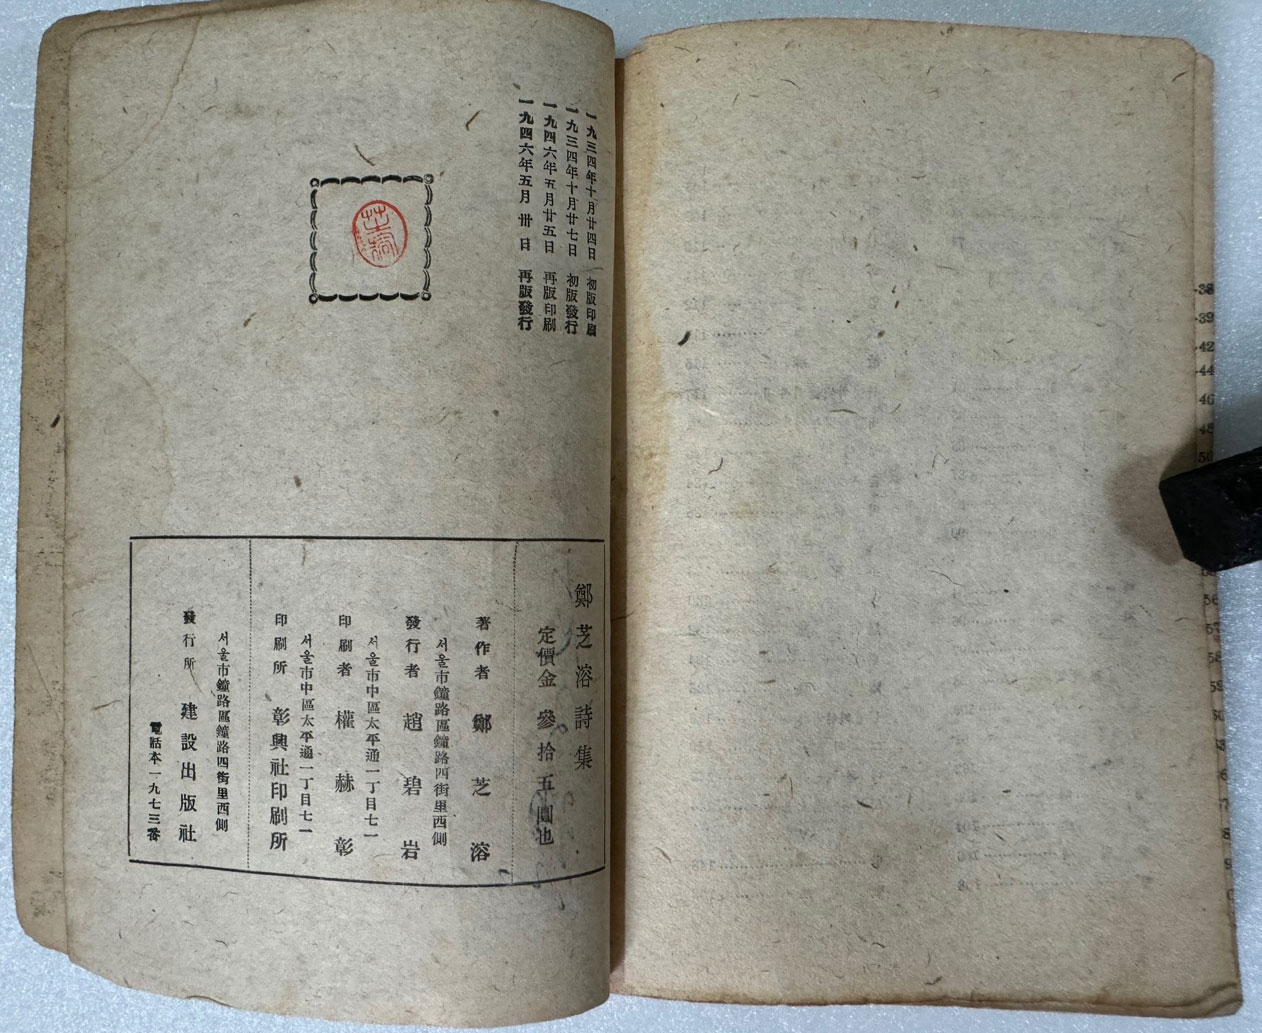 一九三四年十月廿四日 初版印刷
一九三四年十月廿七日 初版發行
一九四六年五月廿五日 再版印刷
一九四六年五月卅日 再版發行
鄭芝溶詩集
定價金參拾五圓也
著作者 鄭芝溶
서울市鐘路區鐘路四街里西側
發行者 趙碧岩
서울市中區太平通一丁目七一
印刷者 權赫彰
서울市中區太平通一丁目七一
印刷所 彰興社印刷所
서울市鐘路區鐘路四街里西側
發行所 建設出版社
電話本一九七三番
38
39
42
44
46
48
56
57
58
59